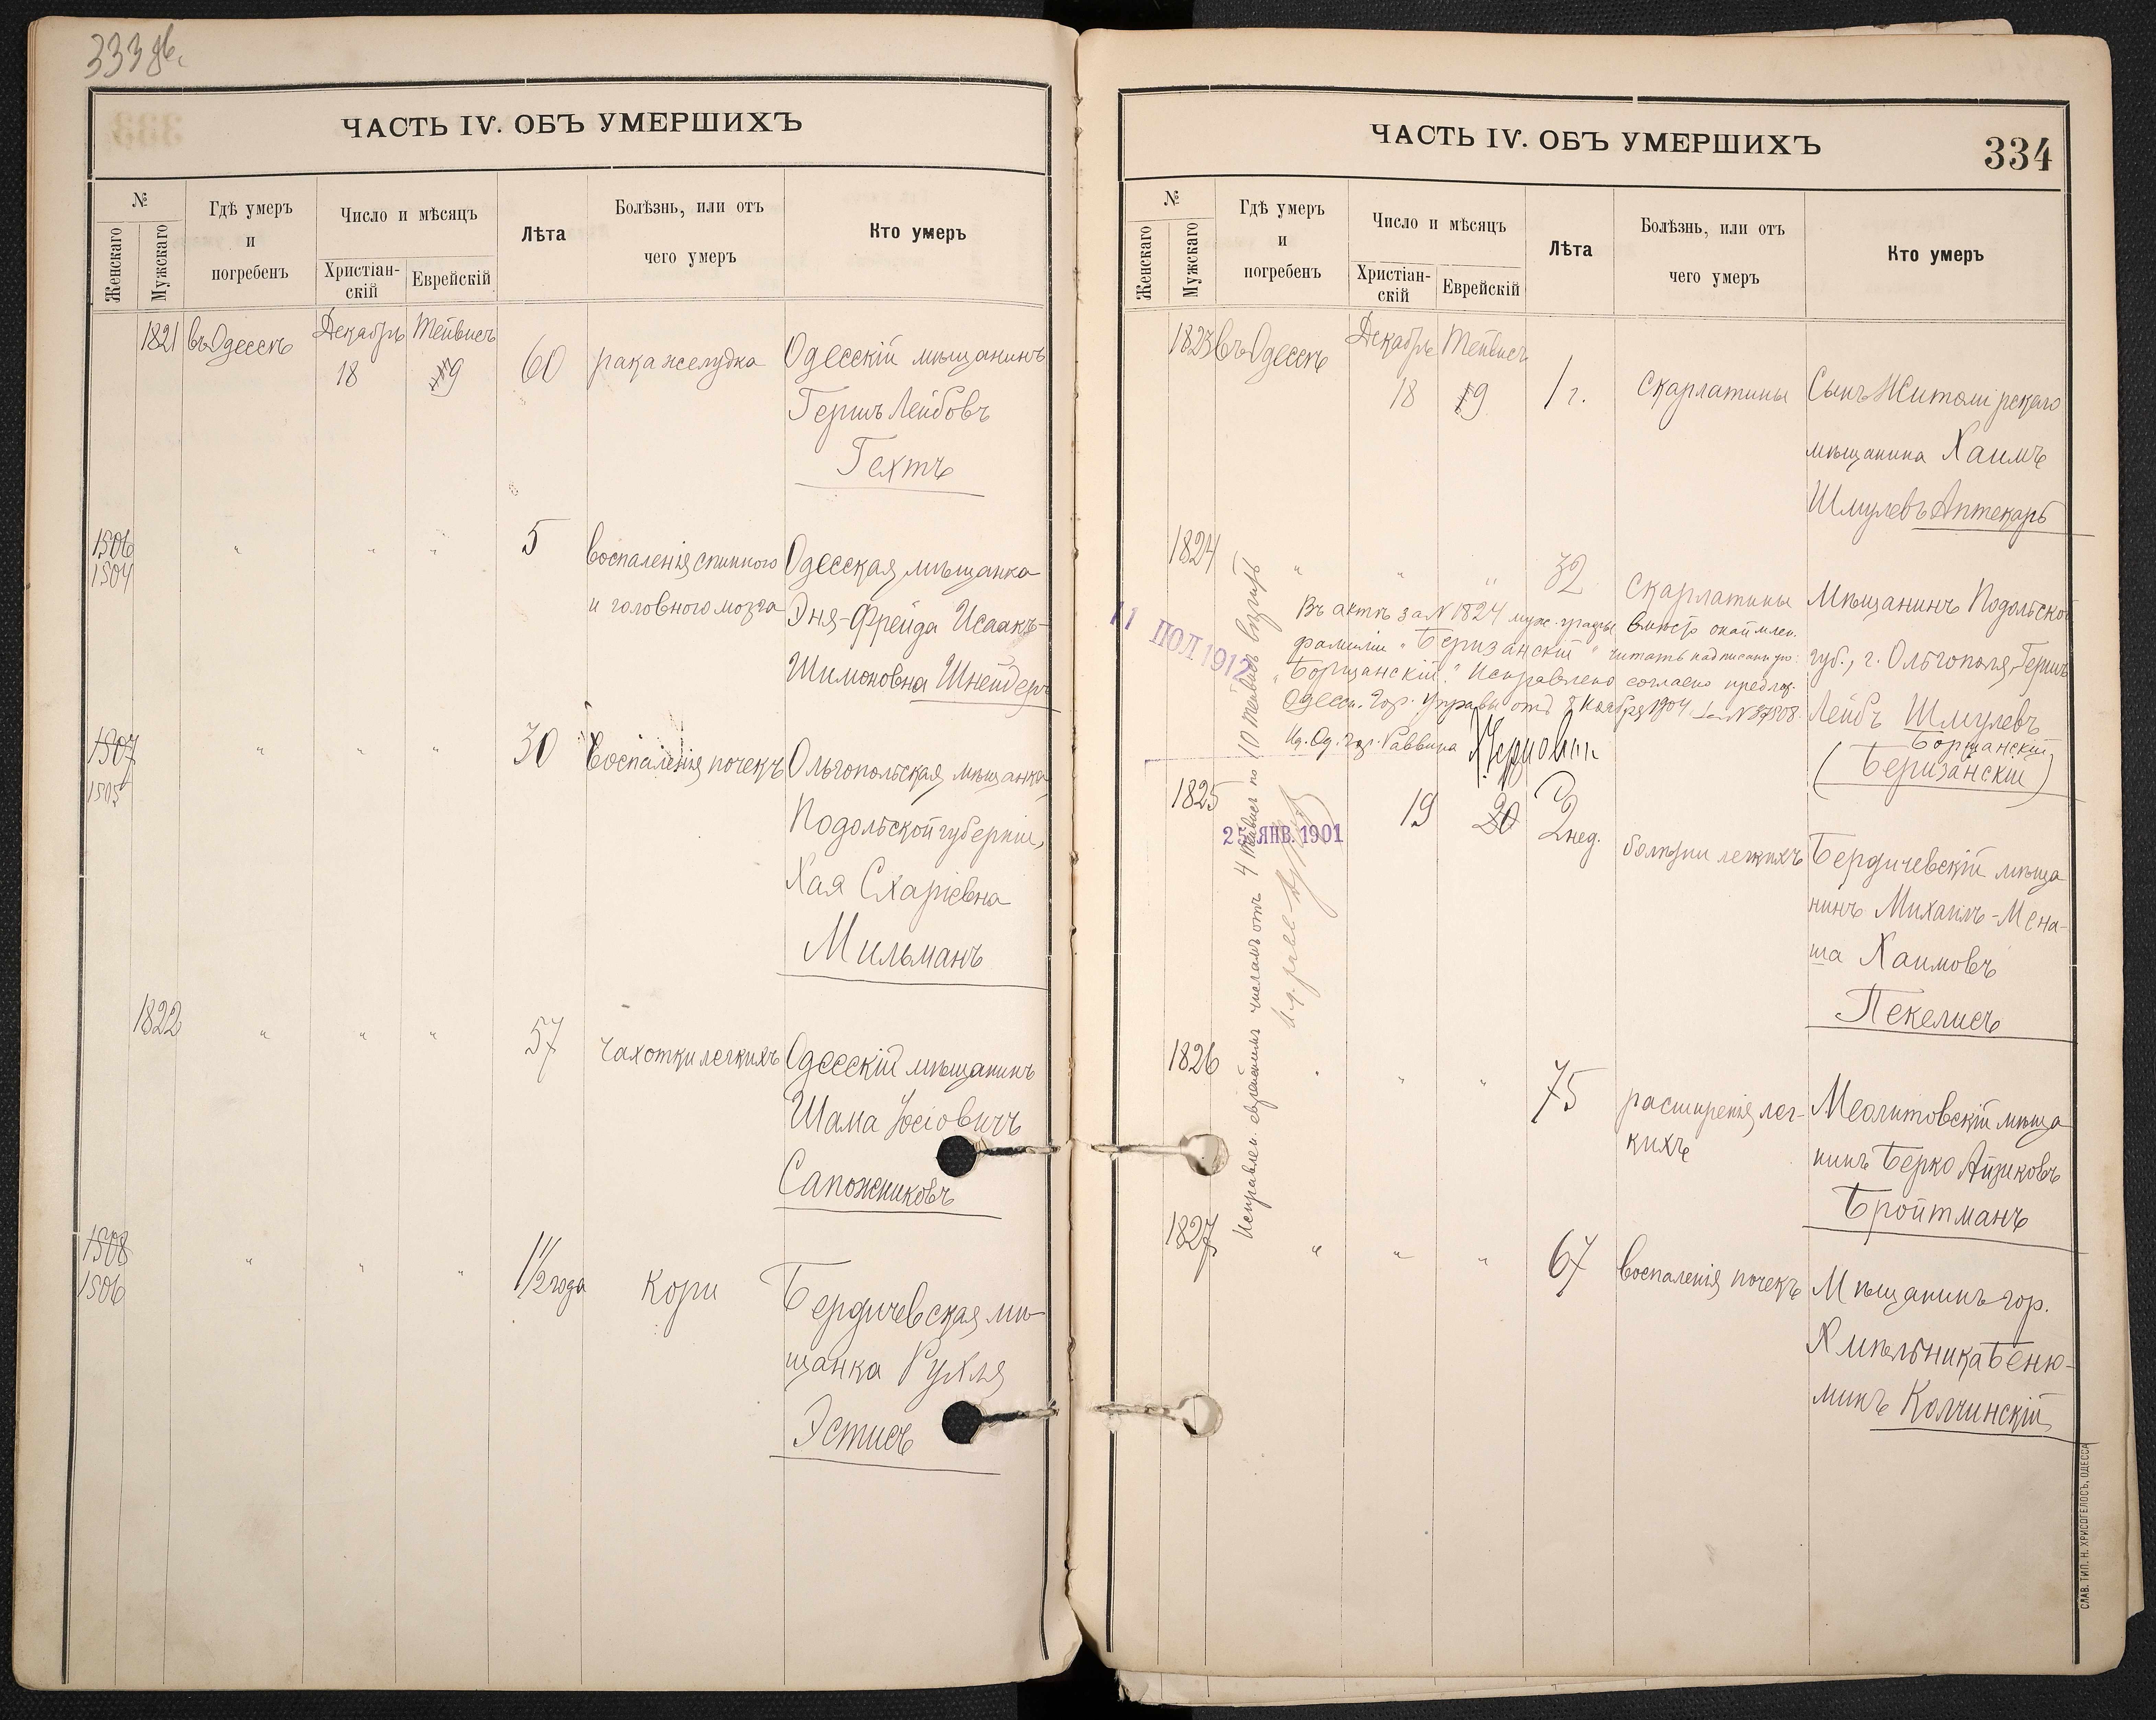 333 об.
ЧАСТЬ IV. ОБЪ УМЕРШИХЪ
№
Женскаго
Мужскаго
Гдѣ умеръ
и
погребенъ
Число и мѣсяцъ
Христіан-
скій
Еврейскій
Лѣта
Болѣзнь, или отъ
чего умеръ
Кто умеръ
1821 въ Одессѣ Декабрь Тейвисъ
18 9 60 рака желудка Одесскій мѣщанинъ
Гершъ Лейбовъ
Гехтъ
1506 " " " 5 воспаленія спинного Одесская мѣщанка
1504 и головного мозга Эня-Фрейда Исаакъ-
Шимоновна Шнейдеръ
1507 " " " 30 Воспаленія почекъ Ольгопольская мѣщанка,
1505 Подольской губерніи,
Хая Схаріевна
Мильманъ
1822 " " " 57 чахотки легкихъ Одесскій мѣщанинъ
Шама Іосіовичъ
Сапожниковъ
1508 " " " 1 1/2 года Кори Бердичевская мѣ-
1506 щанка Рухля
Эстисъ
ЧАСТЬ IV. ОБЪ УМЕРШИХЪ
334
№
Женскаго
Мужскаго
Гдѣ умеръ
и
погребенъ
Число и мѣсяцъ
Христіан-
скій
Еврейскій
Лѣта
Болѣзнь, или отъ
чего умеръ
Кто умеръ
1823 въ Одессѣ Декабрь Тейвисъ
18 9 1 г. Скарлатины Сынъ Житомірскаго
мѣщанина Хаимъ
Шмулевъ Аптекарь
1824 " " " 32 Скарлатины Мѣщанинъ Подольской
губ., г. Ольгополя, Гершъ
Лейбъ Шмулевъ
Борщанскій
(Беризанскій)
Въ актѣ за N 1824 муж. графы, вмѣсто окаймлен.
фамиліи "Беризанскій" читать надписанную:
"Борщанскій". Исправлено согласно предлож.
Одесс. Гор. Управы отъ 8 Ноября 1904 за N 37508.
И.д. Од. Гор. Раввина
1825 19 20 2 нед. болѣзни легкихъ Бердичевскій мѣща
нинъ Михаилъ-Мена-
ша Хаимовъ
Пекелисъ
25 ЯНВ. 1901
1826 " " " 75 расширенія лег- Меолитовскій мѣща
кихъ нинъ Берко Айзиковъ
Бройтманъ
1827 " " " 67 воспаленія почекъ Мѣщанинъ гор.
Хмѣльника Беню-
минъ Колчинскій
Исправлен. еврейскимъ числамъ отъ 4 Тейвисъ по 10 Тейвисъ
СЛАВ. ТИП. Н. ХРИСОГЕЛОСЪ, ОДЕССА